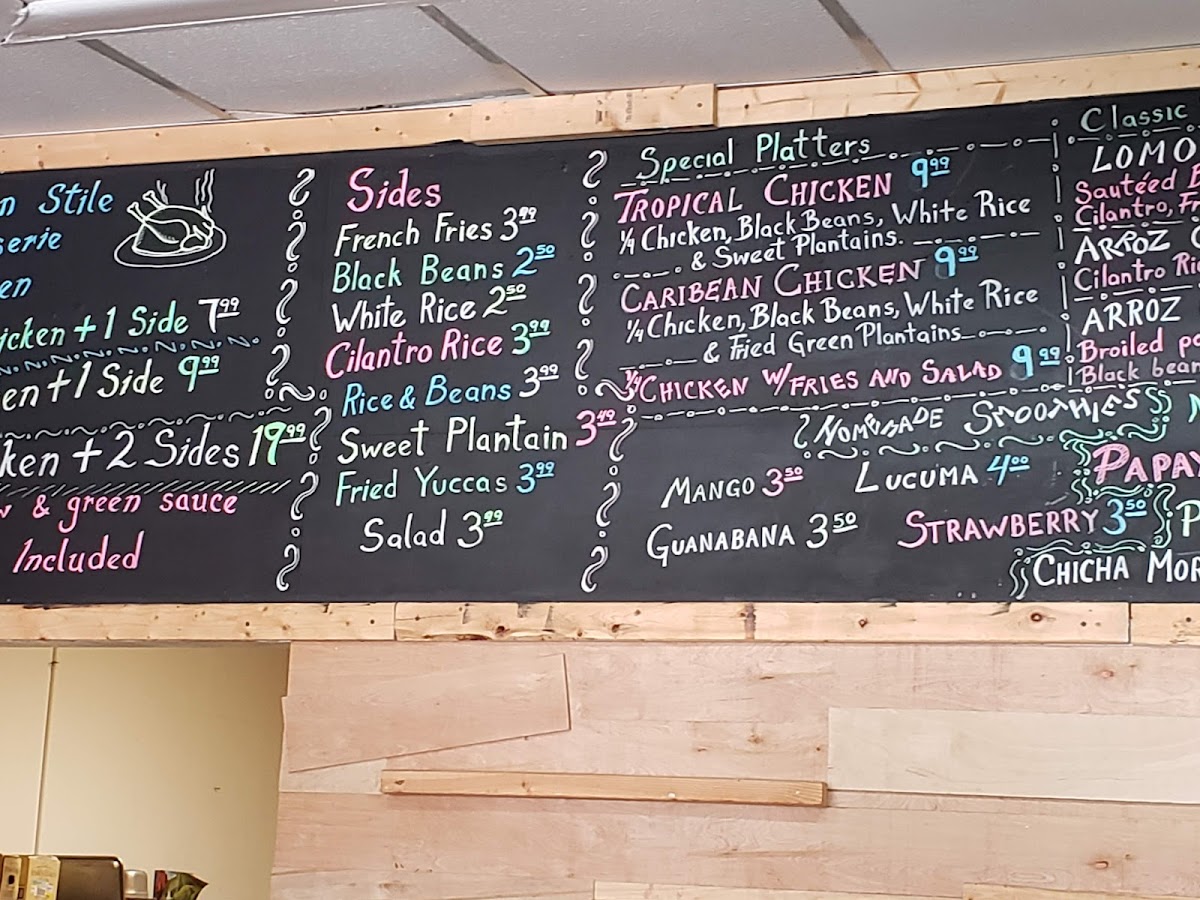 Stile
Chicken + 1 Side 7.99
+ 1 Side 9.99
+ 2 Sides 19.99
& green sauce
Included
Sides
French Fries 3.99
Black Beans 2.50
White Rice 2.50
Cilantro Rice 3.99
Rice & Beans 3.99
Sweet Plantain 3.49
Fried Yuccas 3.99
Salad 3.99
Special Platters
TROPICAL CHICKEN 9.99
1/4 Chicken, Black Beans, White Rice
& Sweet Plantains.
CARIBEAN CHICKEN 9.99
1/4 Chicken, Black Beans, White Rice
& Fried Green Plantains
1/4 CHICKEN W/FRIES AND SALAD 9.99
HOMEMADE SMOOTHIES
MANGO 3.50
LUCUMA 4.00
PAPAY
GUANABANA 3.50
STRAWBERRY 3.50
CHICHA MOR
Classic
LOMO
Sautéed B
Cilantro, Fr
ARROZ C
Cilantro Ric
ARROZ
Broiled po
Black bean